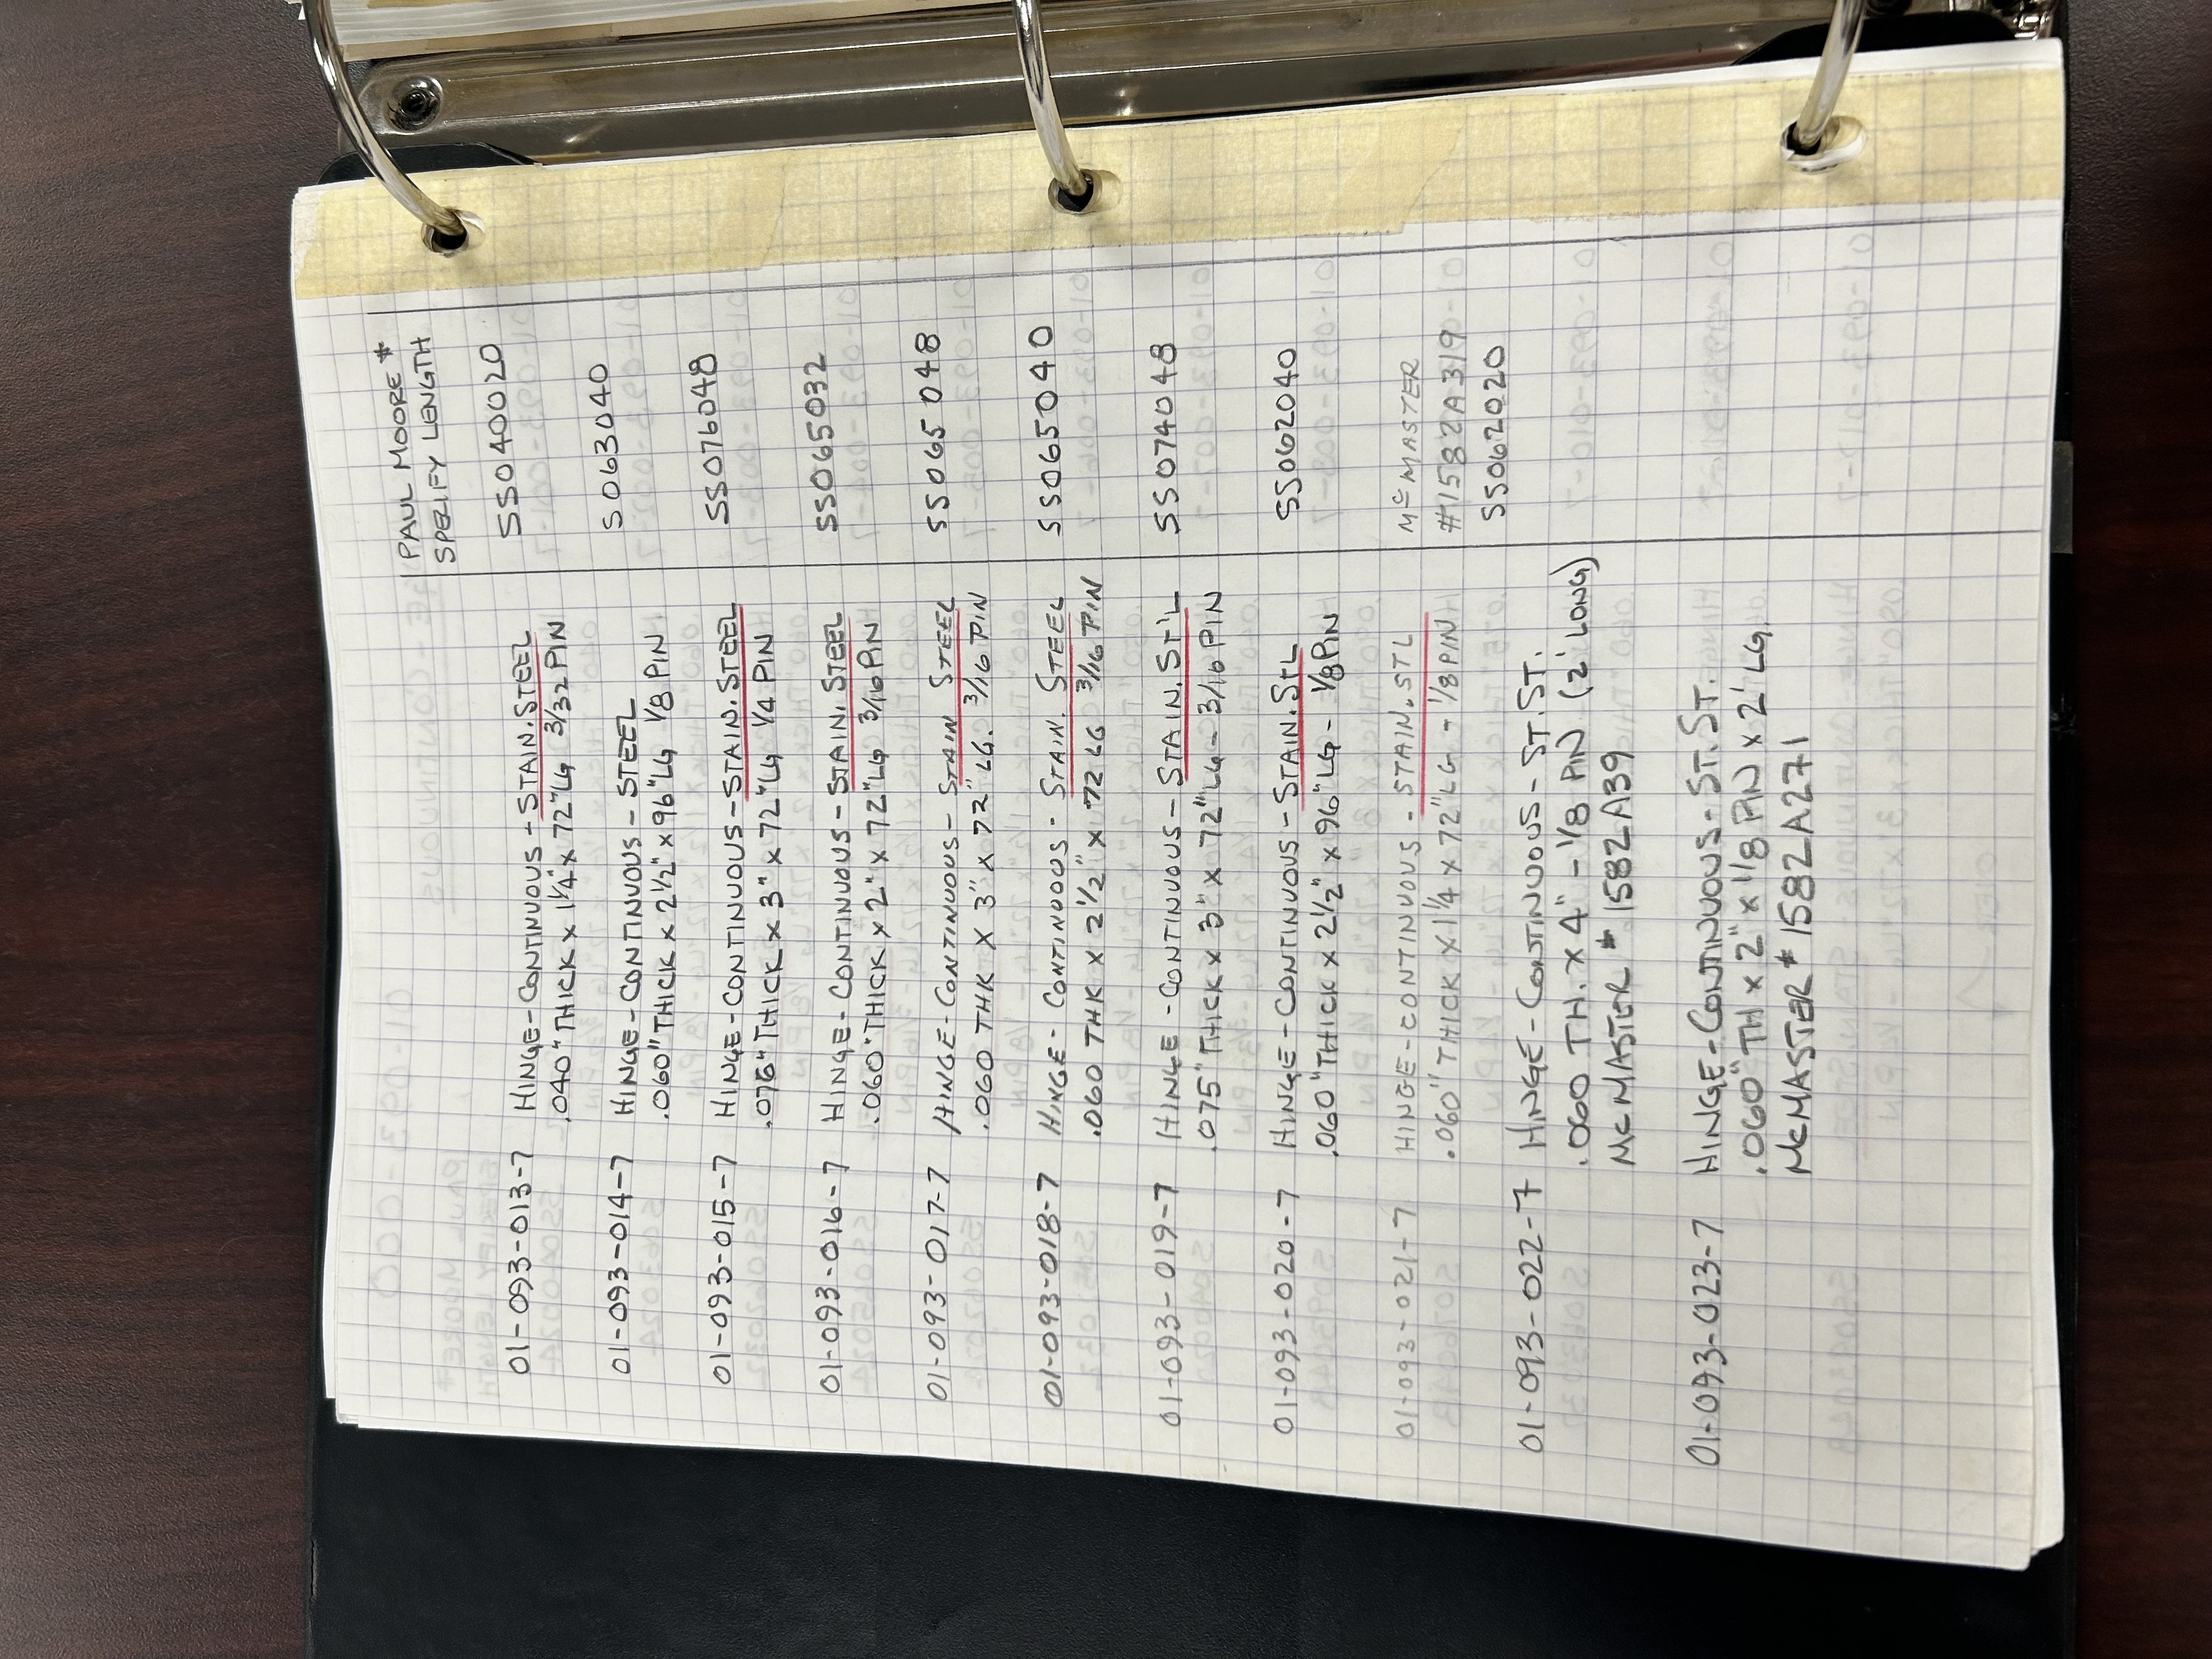 PAUL MOORE #
SPECIFY LENGTH
01-093-013-7 HINGE-CONTINUOUS-STAIN.STEEL SS040020
.040" THICK x 1 1/4" x 72" LG 3/32 PIN
01-093-014-7 HINGE-CONTINUOUS-STEEL S063040
.060" THICK x 2 1/2" x 96" LG 1/8 PIN
01-093-015-7 HINGE-CONTINUOUS-STAIN.STEEL SS076048
.076" THICK x 3" x 72" LG 1/4 PIN
01-093-016-7 HINGE-CONTINUOUS-STAIN. STEEL SS065032
.060" THICK x 2" x 72" LG 3/16 PIN
01-093-017-7 HINGE-CONTINUOUS-STAIN STEEL SS065048
.060 THK X 3" x 72" LG. 3/16 PIN
01-093-018-7 HINGE-CONTINUOUS-STAIN. STEEL SS065040
.060 THK x 2 1/2" x 72 LG 3/16 PIN
01-093-019-7 HINGE-CONTINUOUS-STAIN. ST'L SS074048
.075" THICK x 3" x 72" LG - 3/16 PIN
01-093-020-7 HINGE-CONTINUOUS-STAIN.STL SS062040
.060" THICK x 2 1/2" x 96" LG - 1/8 PIN
01-093-021-7 HINGE-CONTINUOUS-STAIN.STL McMASTER
.060" THICK X 1 1/4 x 72" LG - 1/8 PIN #1582A319
SS062020
01-093-022-7 HINGE-CONTINUOUS-ST.ST.
.060 TH. X 4" - 1/8 PIN (2' LONG)
McMASTER # 1582A39
01-093-023-7 HINGE-CONTINUOUS-ST.ST.
.060" TH x 2" x 1/8 PIN x 2' LG.
McMASTER # 1582A271